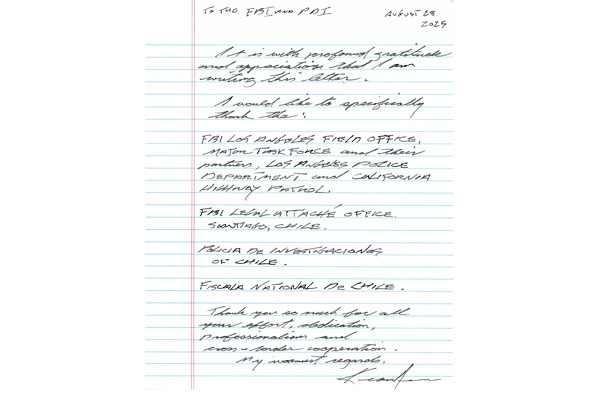 TO THE FBI AND PDI
AUGUST 28
2025
It is with profound gratitude
and appreciation that I am
writing this letter.
I would like to specifically
thank the:
FBI LOS ANGELES FIELD OFFICE,
MAJOR TASK FORCE and their
partners, LOS ANGELES POLICE
DEPARTMENT and CALIFORNIA
HIGHWAY PATROL.
FBI LEGAL ATTACHÉ OFFICE.
SANTIAGO, CHILE.
POLICIA DE INVESTIGACIONES
OF CHILE.
FISCALA NATIONAL DE CHILE.
Thank you so much for all
your effort, dedication,
professionalism and
cross-border cooperation.
My warmest regards,